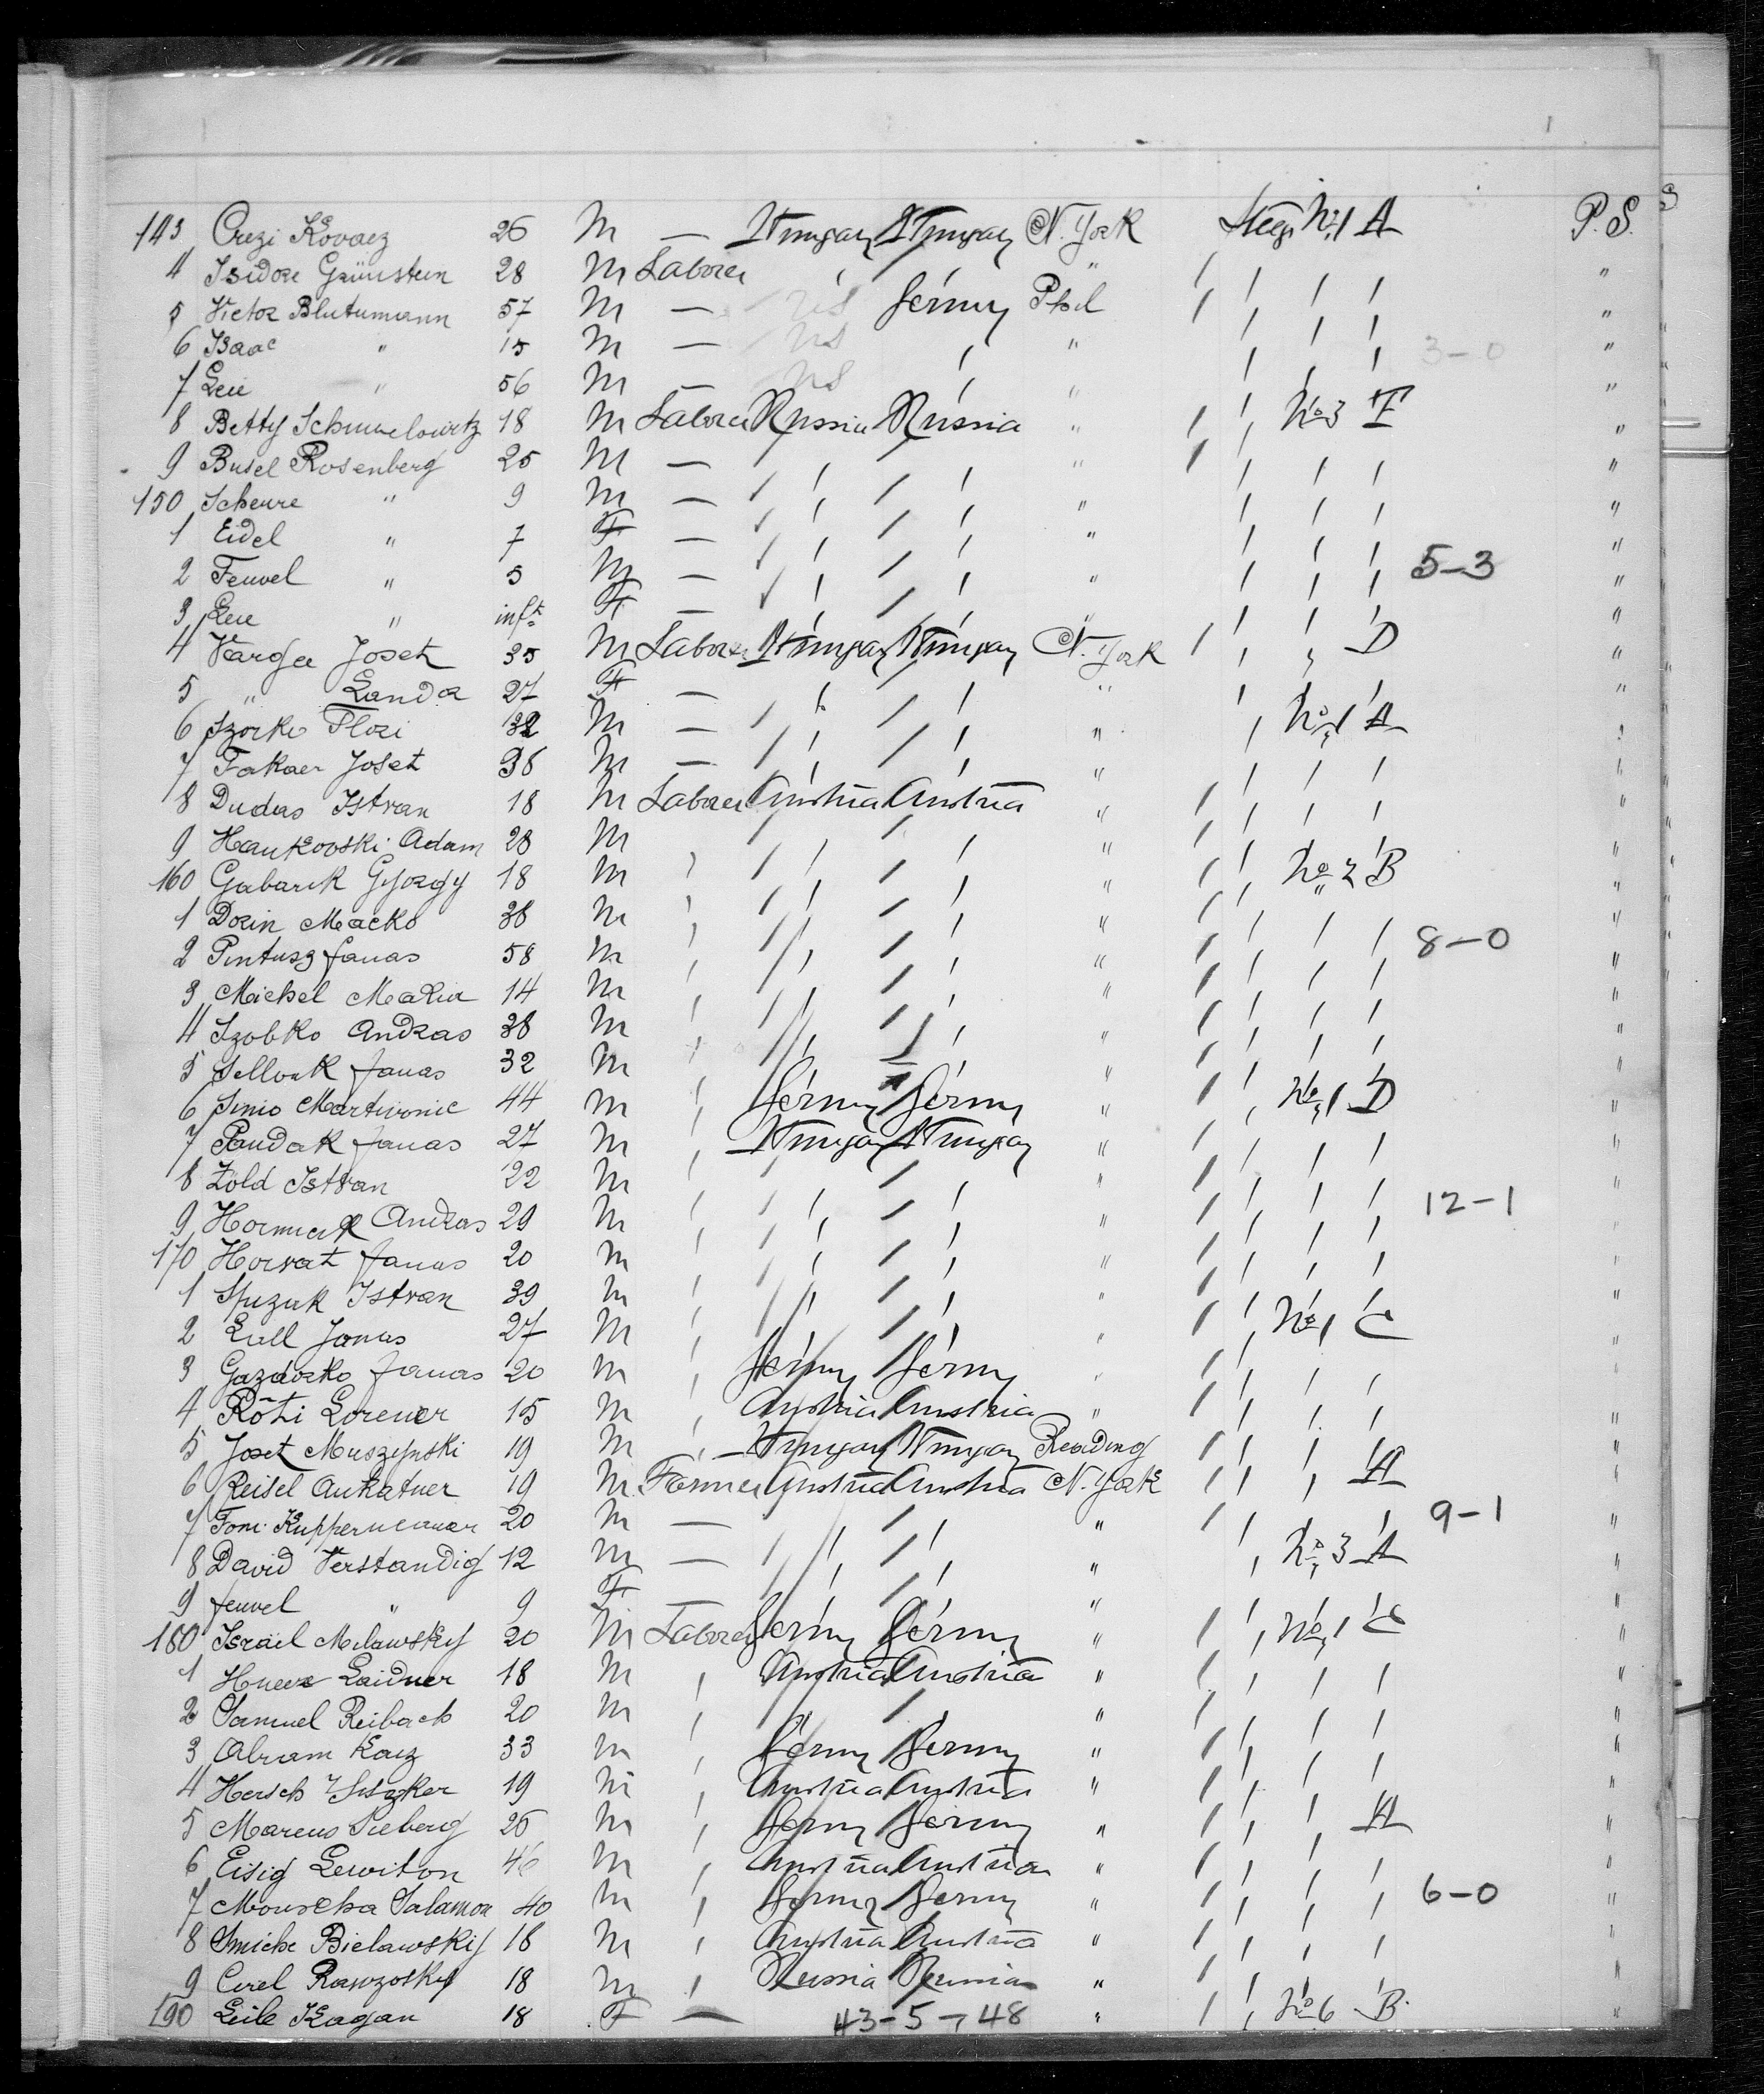 143 Crezi Kovacz 26 M — Hungary Hungary N. York Steeg No 1 A P. S.
4 Isidore Grünstein 28 M Laborer " " "
5 Victor Blutumann 57 M — US Germy Phil "
6 Isaac " 15 M — US " " 3-0 "
7 Leie " 56 M — US " " "
8 Betty Schmuelowitz 18 M Laborer Russia Russia " No 3 F "
9 Busel Rosenberg 25 M — " " " "
150 Scheure " 9 M — " " " "
1 Eidel " 7 F — " " " "
2 Feuvel " 5 M — " " " 5-3 "
3 Leie " inft F — " " " "
4 Varga Joset 35 M Laborer Hungary Hungary N. York D "
5 " Landa 27 F — " " " "
6 Szorke Flori 32 M — " " " No 1 A "
7 Fakaer Joset 36 M — " " " "
8 Dudas Istvan 18 M Laborer Austria Austria " "
9 Hankovski Adam 28 M " " " "
160 Gabarik György 18 M " " " " No 2 B "
1 Dorin Macko 38 M " " " " "
2 Pintusz Janas 58 M " " " " 8-0 "
3 Michel Maria 14 M " " " " "
4 Szobko Andras 38 M " " " " "
5 Sellouk Janas 32 M " " " " "
6 Simio Martinonic 44 M " Germy Germy " No 1 D "
7 Pandak Janas 27 M " Hungary Hungary " "
8 Zöld Istvan 22 M " " " " "
9 Andras 29 M " " " " 12-1 "
170 Horvat Janas 20 M " " " " "
1 Spuzak Istvan 39 M " " " " "
2 Lull Janus 27 M " " " " No 1 C "
3 Gazdorko Janas 20 M " Germy Germy " "
4 Röti Lorencr 15 M " Austria Austria " "
5 Joset Muszynski 19 M " Hungary Hungary Reading "
6 Reisel Aukatner 19 M Farmer Austria Austria N. York A "
7 Toni Kuppermeauer 20 M — " " " 9-1 "
8 David Verstandig 12 M — " " " No 3 A "
9 Jeuvel " 9 F " " " "
180 Israel Milawsky 20 M Laborer Germy Germy " No 1 C "
1 Laidner 18 M " Austria Austria " "
2 Samuel Reibach 20 M " " " " "
3 Abram Kaiz 33 M " Germy Germy " "
4 Hersch 19 M " Austria Austria " "
5 Marcus Sieberg 26 M " Germy Germy " A "
6 Eisig Lewiton 46 M " Austria Austria " "
7 Mouscha Salamon 40 M " Germy Germy " 6-0 "
8 Smiche Bielawskij 18 M " Austria Austria " "
9 Cirel Rawzosky 18 M " Russia Russia " "
190 Leib Kagan 18 F — 43-5-48 " No 6 B "